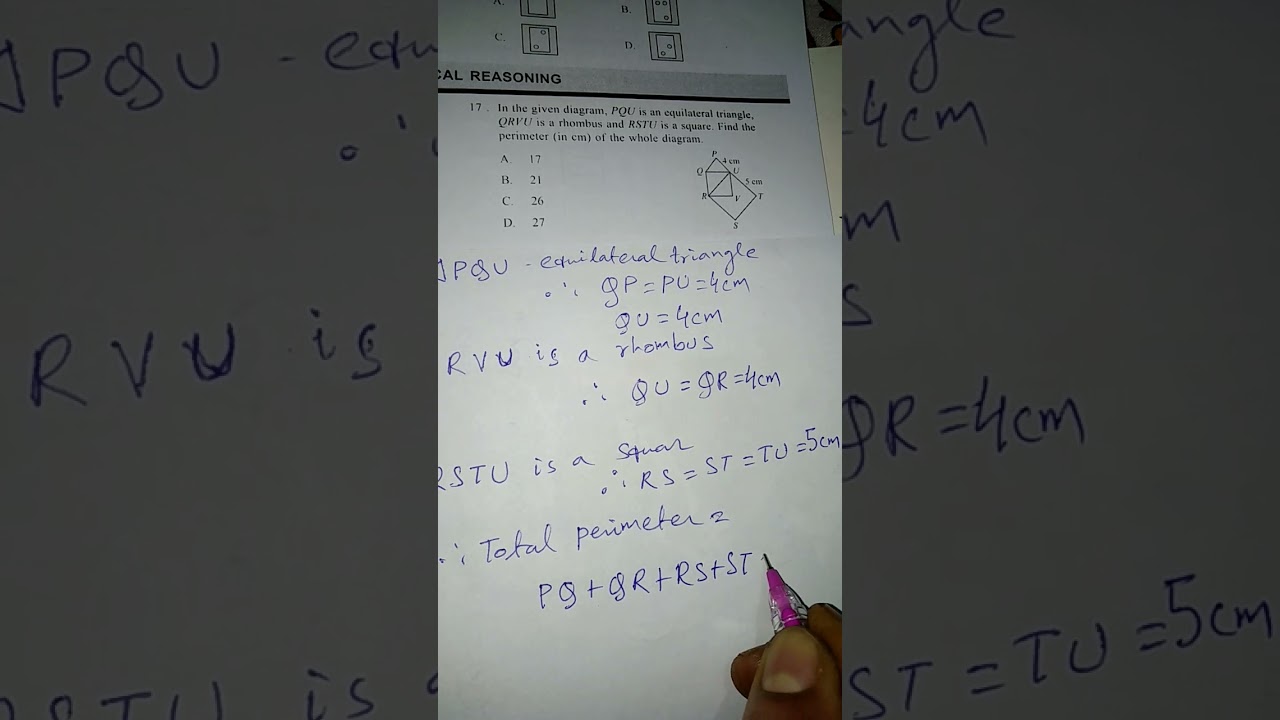 A.
B.
C.
D.
CAL REASONING
17. In the given diagram, PQU is an equilateral triangle,
QRVU is a rhombus and RSTU is a square. Find the
perimeter (in cm) of the whole diagram.
A. 17
B. 21
C. 26
D. 27
P
4 cm
Q
U
5 cm
R
V
T
S
PQU - equilateral triangle
∴ QP = PU = 4cm
QU = 4cm
RVU is a rhombus
∴ QU = QR = 4cm
RSTU is a squar
∴ RS = ST = TU = 5cm
∴ Total perimeter =
PQ + QR + RS + ST